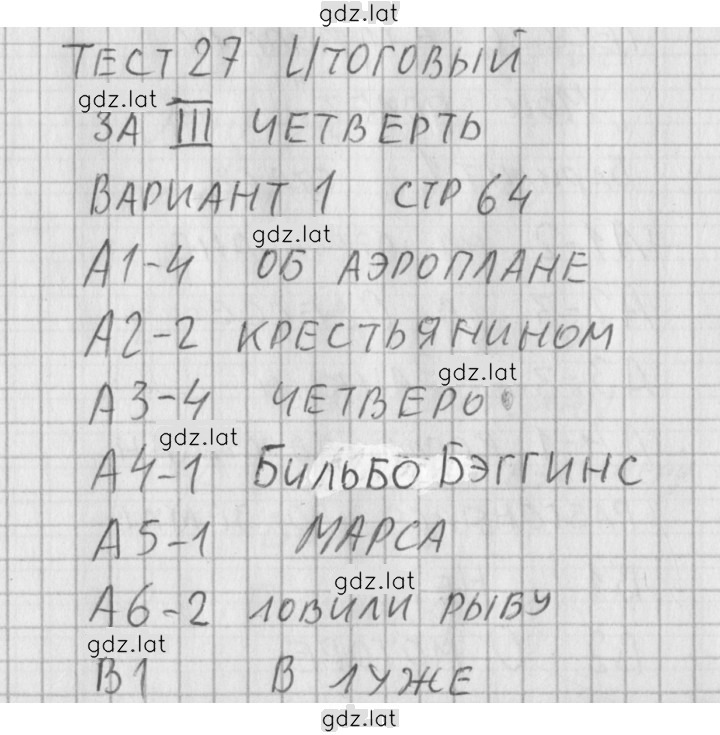 gdz.lat
ТЕСТ 27 ИТОГОВЫЙ
gdz.lat
ЗА III ЧЕТВЕРТЬ
ВАРИАНТ 1 СТР 64
gdz.lat
А1-4 ОБ АЭРОПЛАНЕ
А2-2 КРЕСТЬЯНИНОМ
gdz.lat
А3-4 ЧЕТВЕРО
gdz.lat
А4-1 БИЛЬБО БЭГГИНС
А5-1 МАРСА
gdz.lat
А6-2 ЛОВИЛИ РЫБУ
gdz.lat
В1 В ЛУЖЕ
gdz.lat